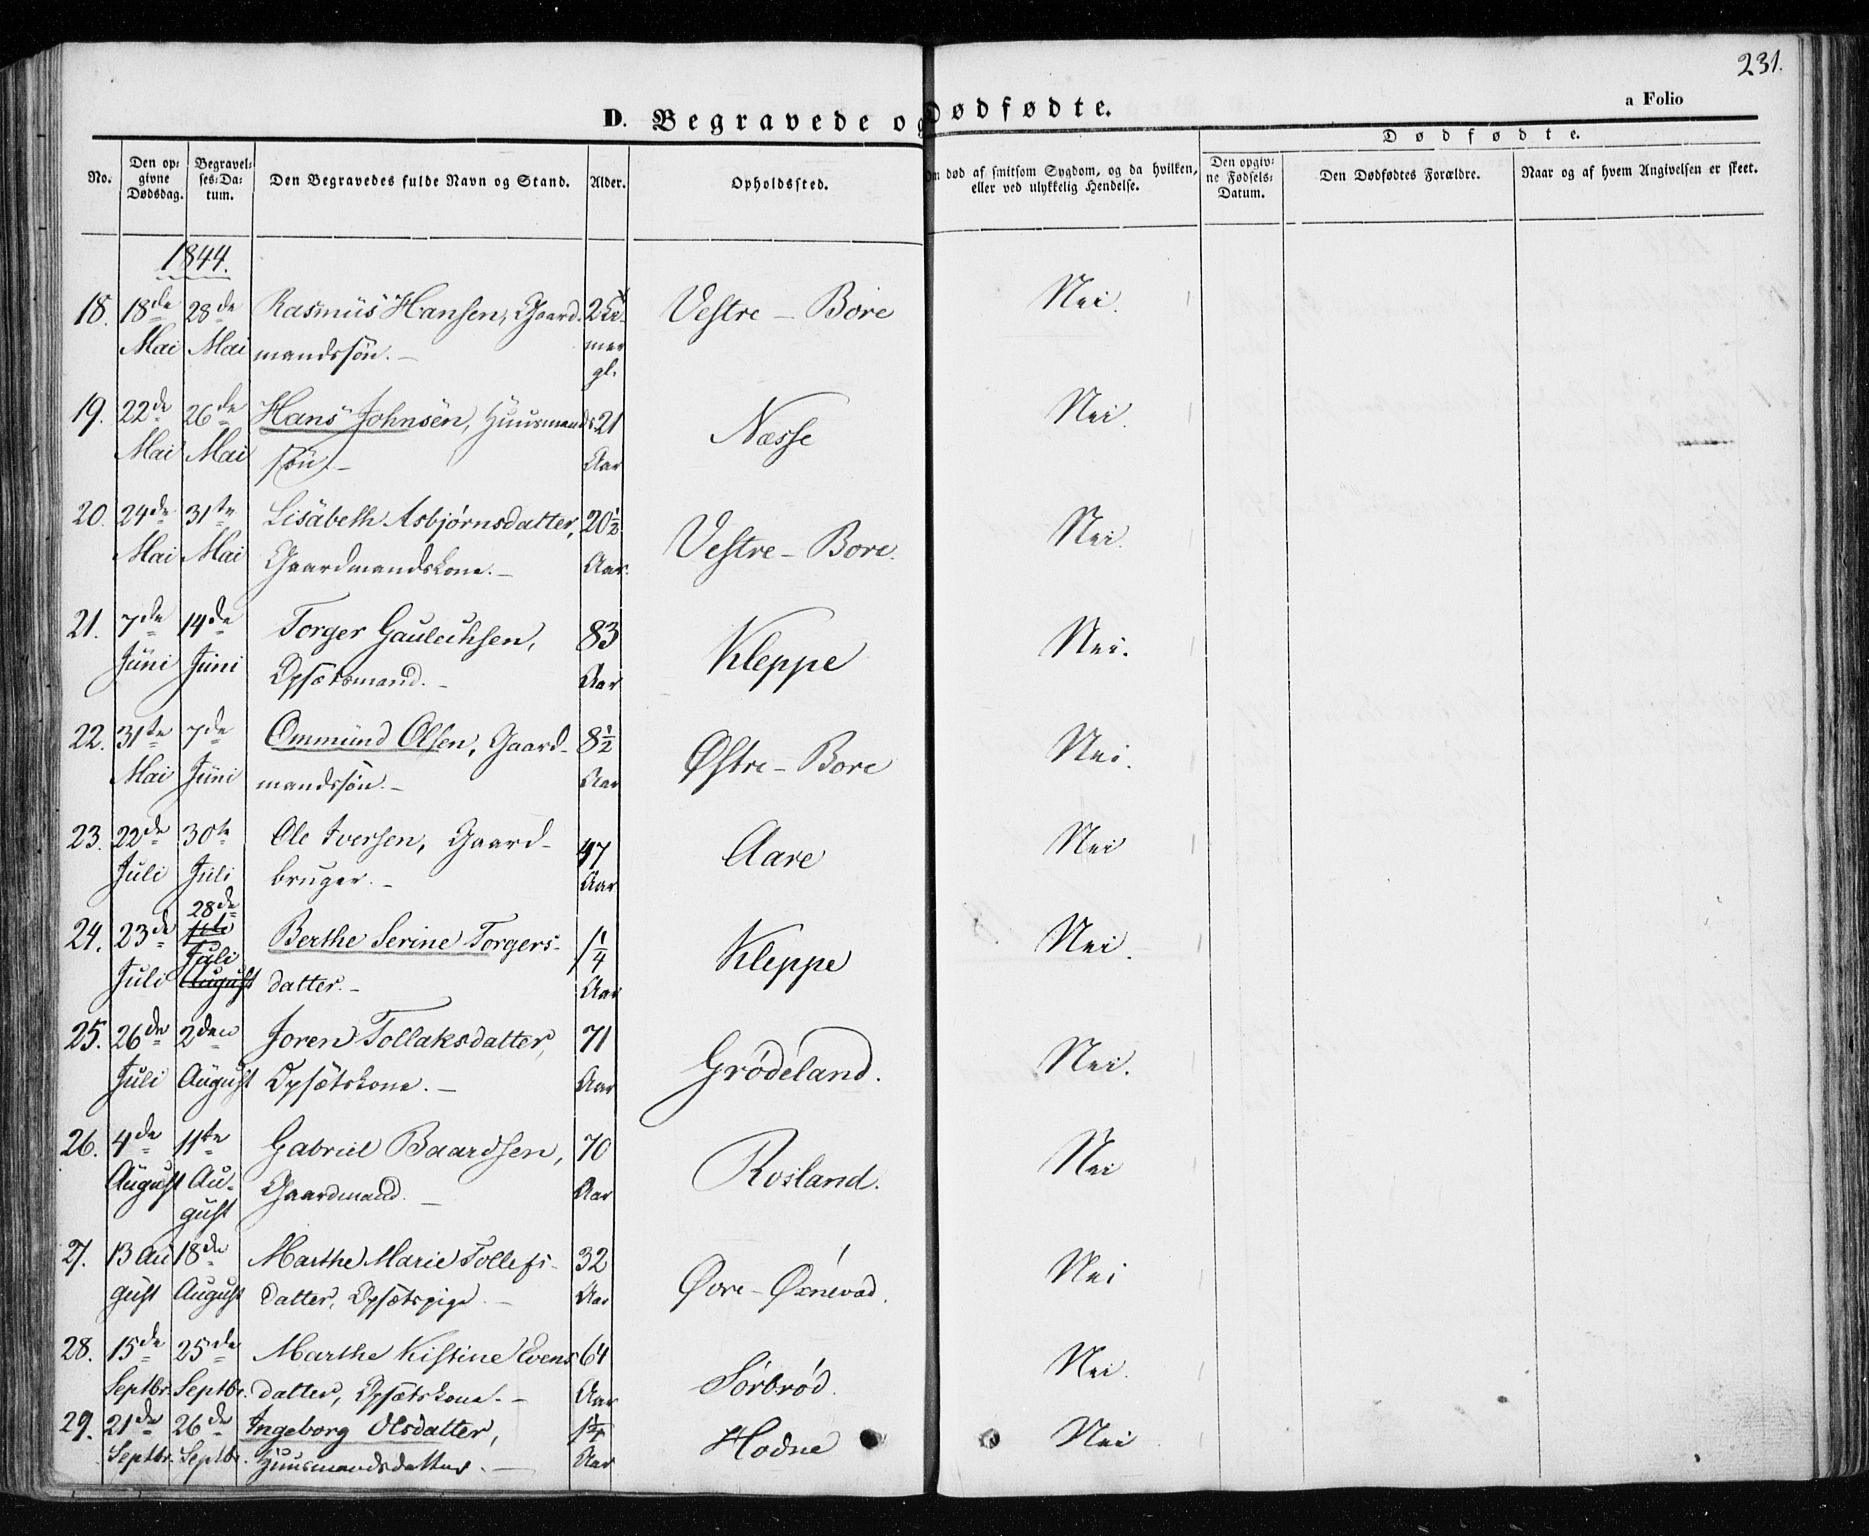 231.
a Folio
D. Begravede og Dødfødte.
Dødfødte.
No.
Den op-
givne
Dødsdag.
Begravel-
ses-Da-
tum.
Den Begravedes fulde Navn og Stand.
Alder.
Opholdssted.
Om død af smitsom Sygdom, og da hvilken,
eller ved ulykkelig Hendelse.
Den opgiv-
ne Fødsels-
Datum.
Den Dødfødtes Forældre.
Naar og af hvem Angivelsen er skeet.
1844.
18. 18de 28de Rasmus Hansen, Gaard- Vestre-Bore Nei.
Mai Mai mandssøn.- mer
gl.
19. 22de 26de Hans Johnsen, Huusmands- 21 Næsse Nei.
Mai Mai søn.- Aar
20. 24de 31te Lisabeth Asbjørnsdatter, 20½ Vestre-Bore. Nei.
Mai Mai Gaardmandskone.- Aar.
21. 7de 14de Torger 83 Kleppe Nei.
Juni Juni Opsætsmand.- Aar
22. 31te 7de Ommund Olsen, Gaard- 8½ Østre-Bore Nei.
Mai Juni mandssøn.- Aar
23. 22de 30te Ole Iversen, Gaard- 47 Aare Nei
Juli Juli bruger.- Aar
28de
24. 23de Berthe Serine Torgers- 1¼ Kleppe Nei.
Juli
Juli August datter.- Aar
25. 26de 2den Joren Tollaksdatter, 71 Grødeland. Nei.
Juli August Opsætskone.- Aar
26. 4de 11te Gabriel Baardsen, 70 Rosland. Nei
August Au- Gaardmand.- Aar
gust
27. 13 Au 18de Marthe Marie Tollefs- 32 Øvre-Øxnevad. Nei
gust August datter, Opsætspige.- Aar
28. 15de 25de Marthe Kistine Evens 64 Sørbrød. Nei.
Septbr. Septbr. datter, Opsætskone.- Aar
29. 21de 26de Ingeborg Olsdatter, 1¼ Hodne Nei
Septbr. Septbr. Huusmandsdatter.- Aar